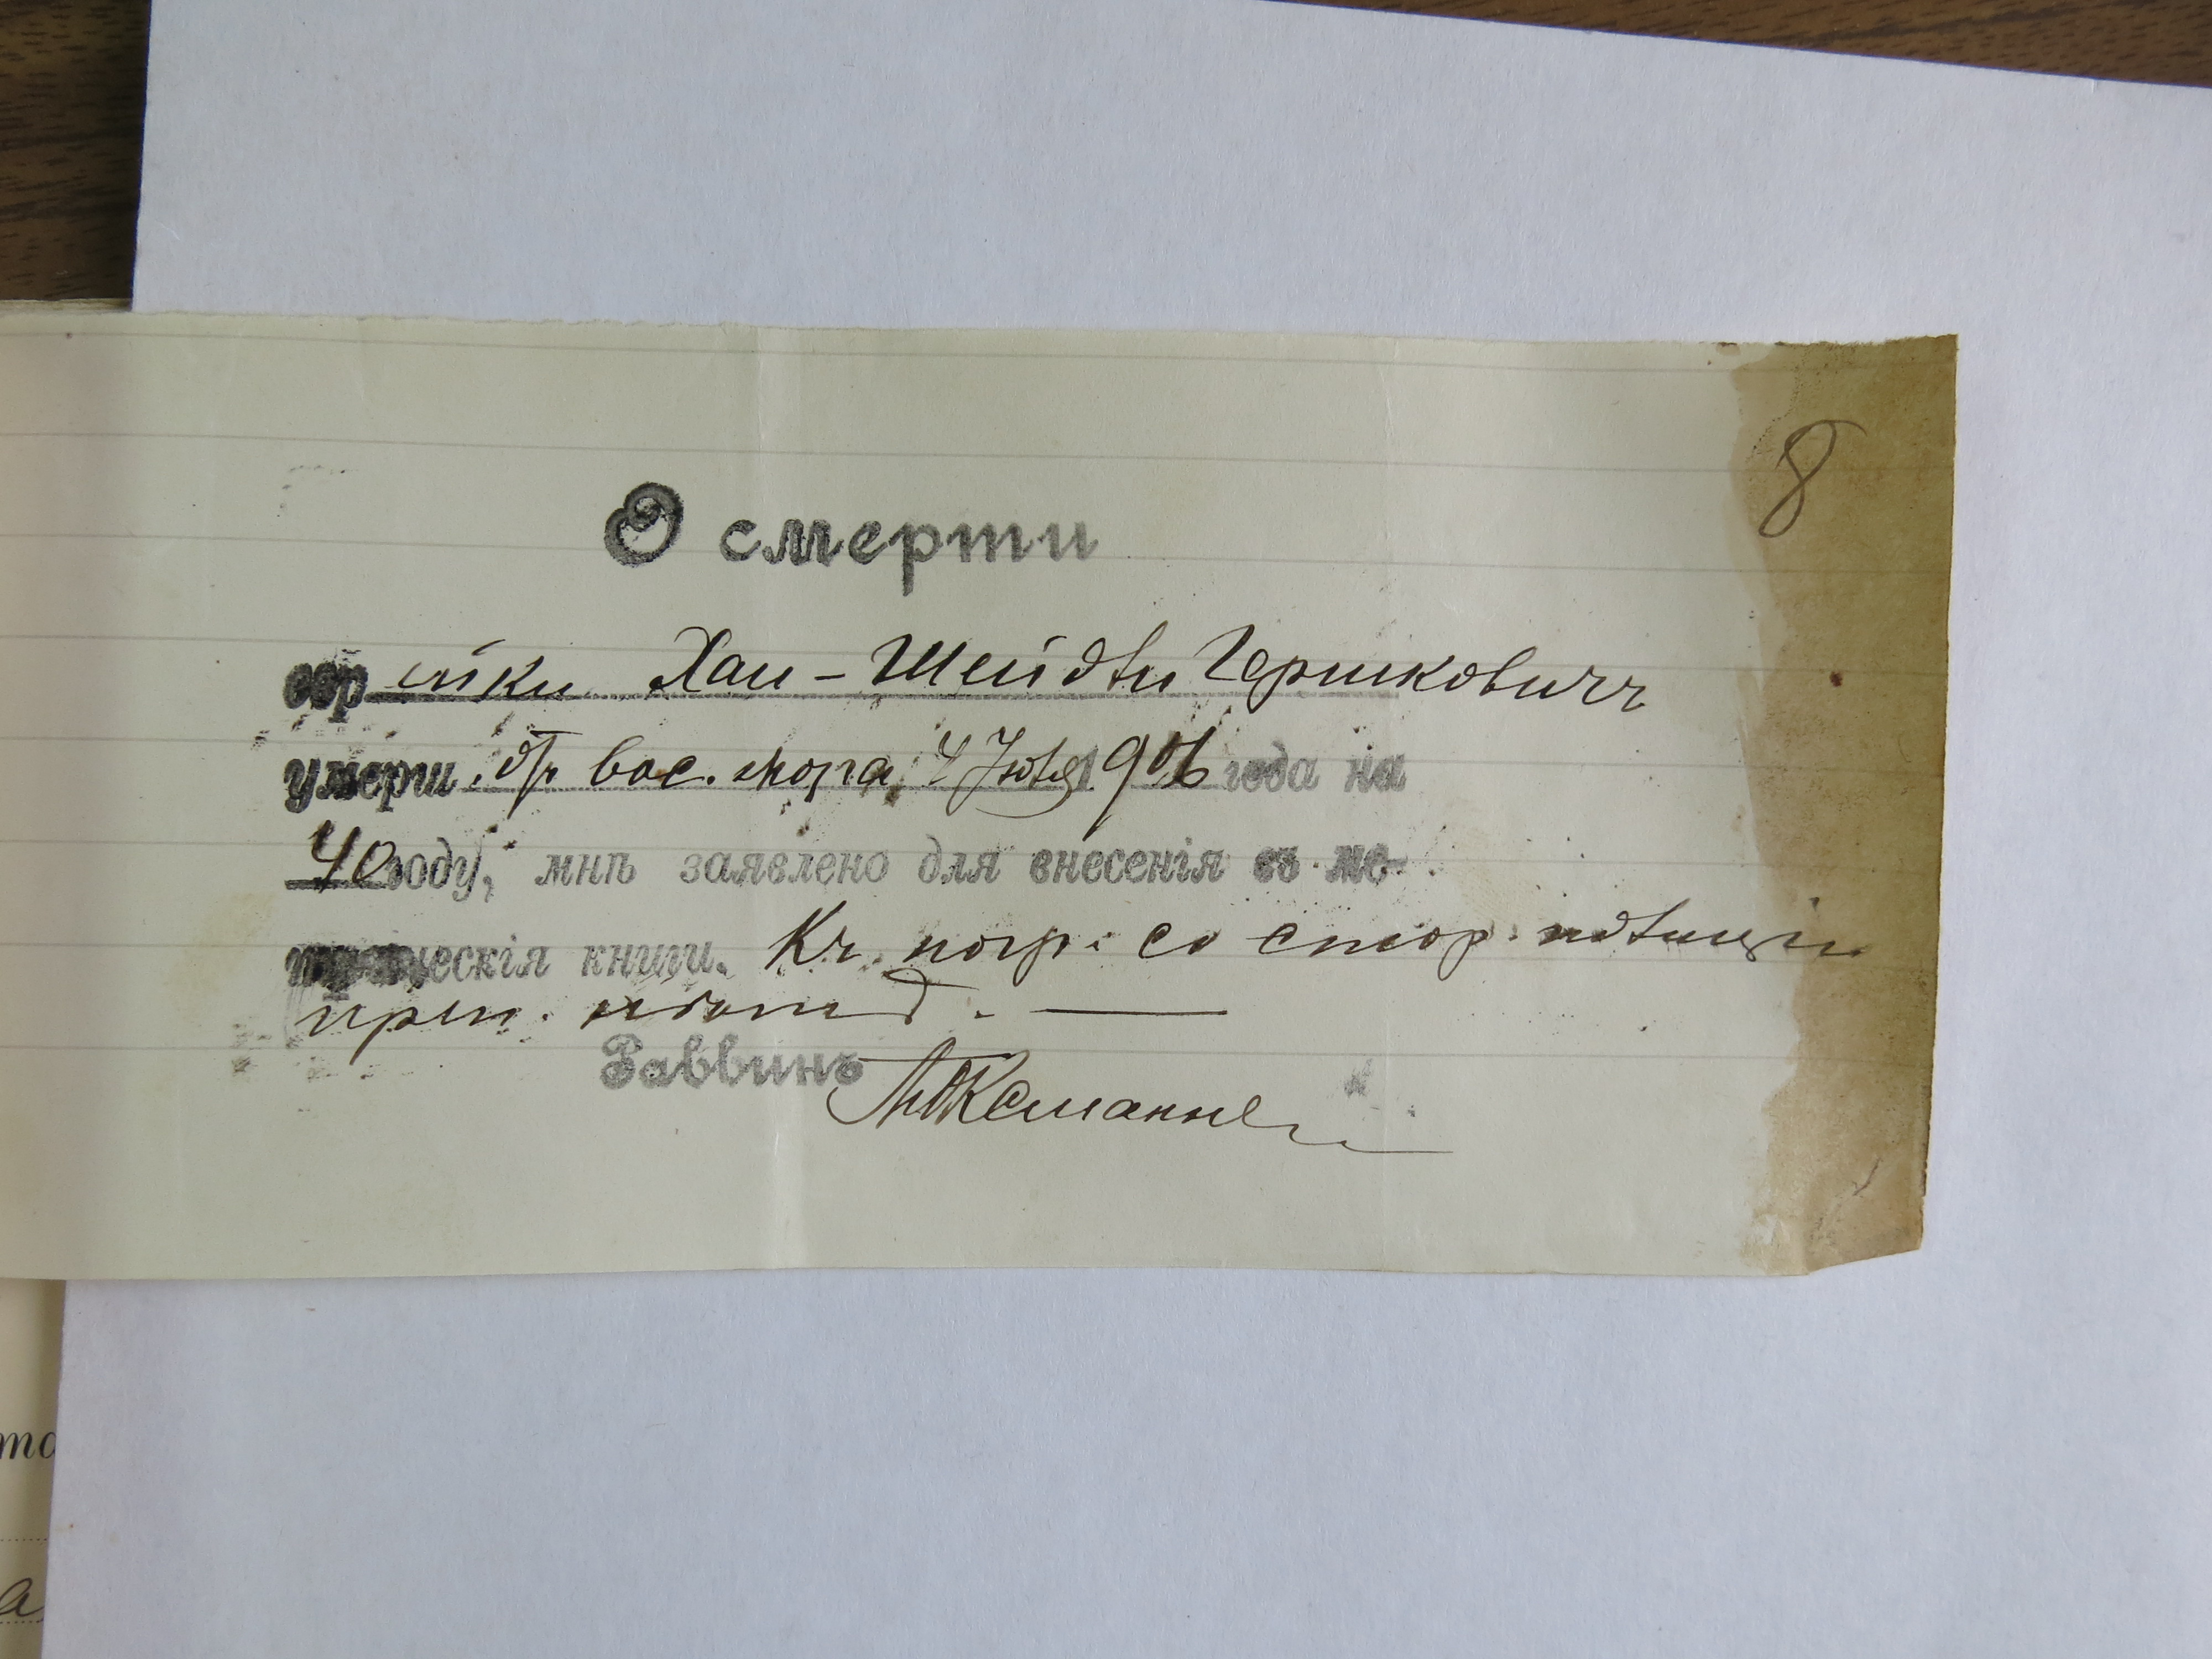 8
О смерти
еврейки Хаи-Шейдли Гершкович
умерш. от вос. мозга, 4 Іюля 1906 года на
40 году, мнѣ заявлено для внесенія въ ме-
трическія книги. Къ погр. со стор. полиціи
преп. нѣтъ.
Раввинъ
мо
а